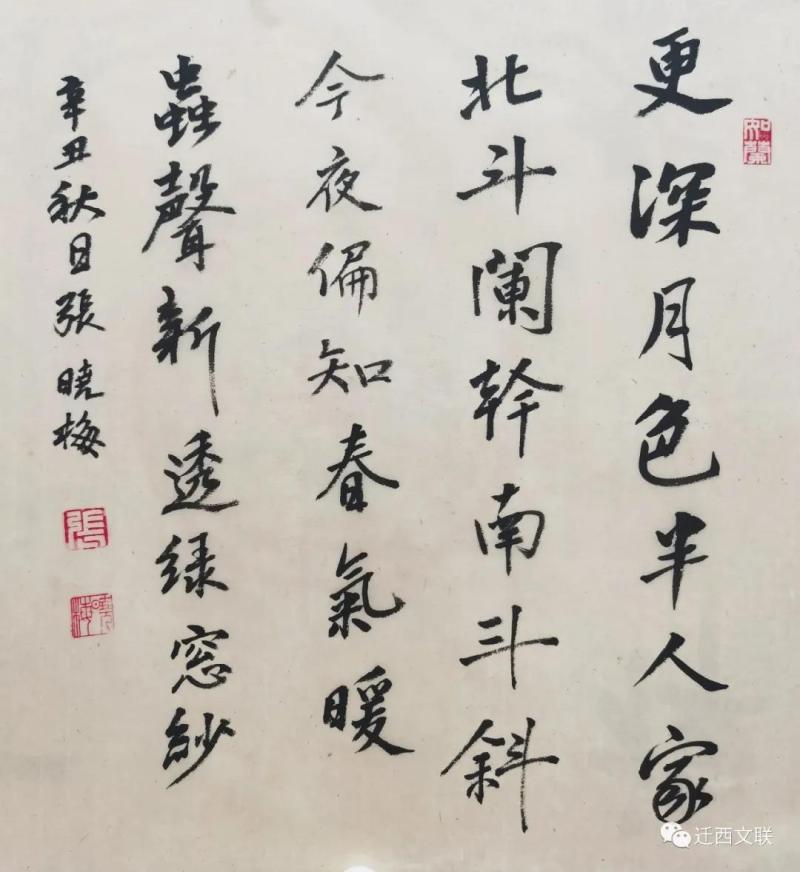 更深月色半人家
北斗闌幹南斗斜
今夜偏知春氣暖
蟲聲新透绿窓紗
辛丑秋日張曉梅
迁西文联